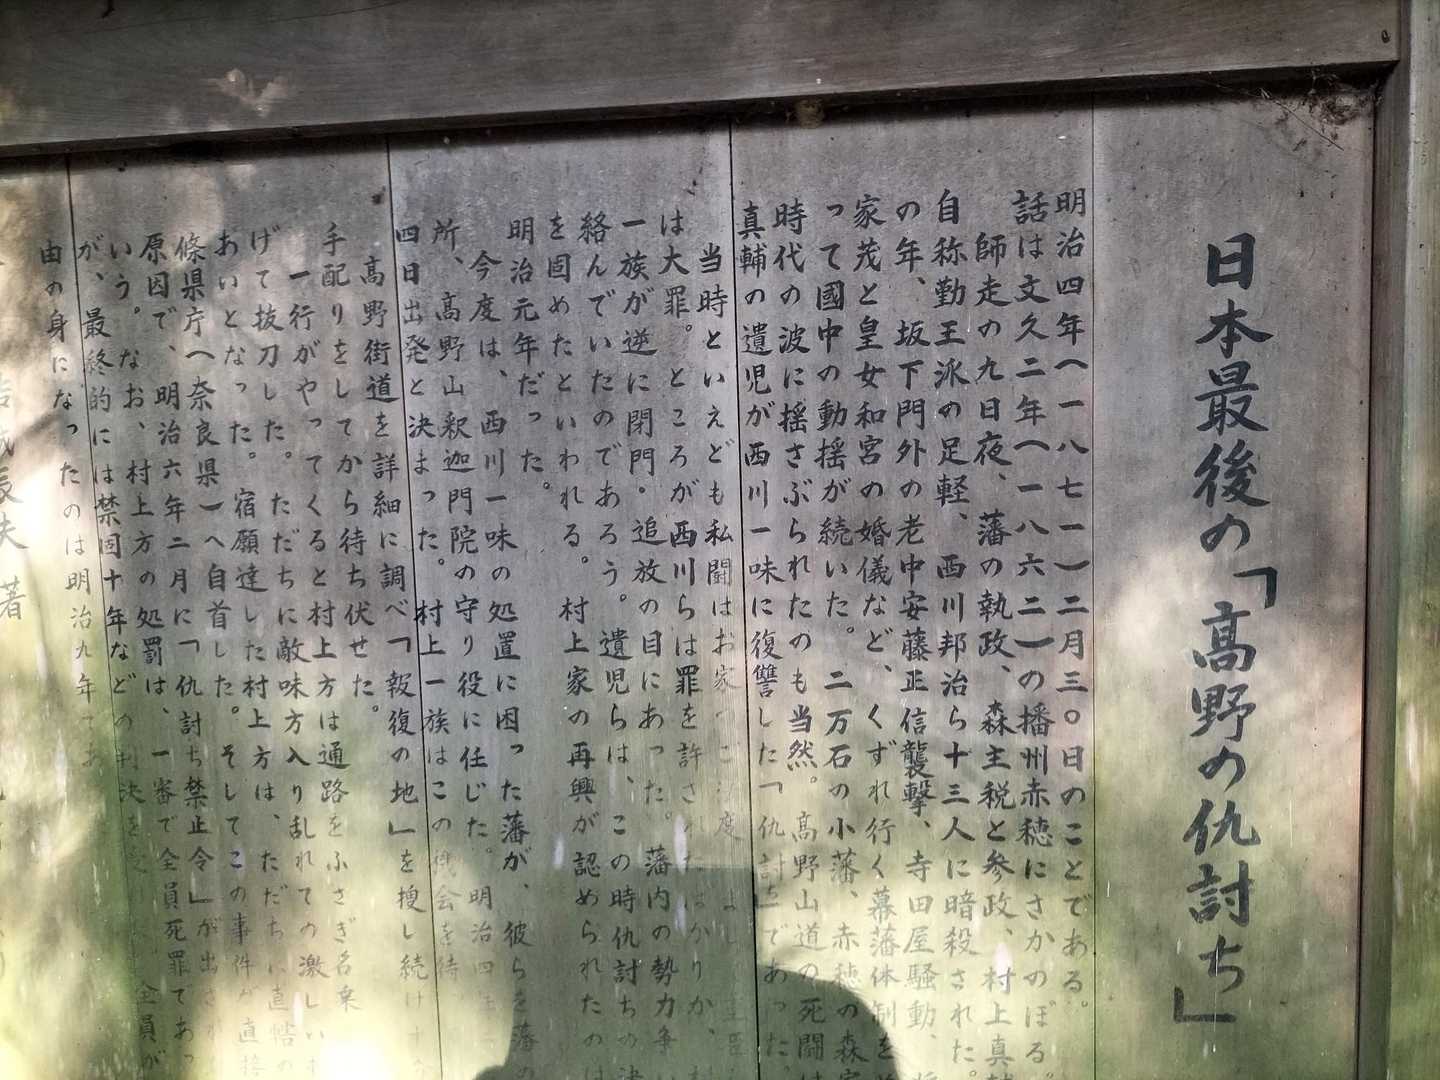 日本最後の「高野の仇討ち」
明治四年(一八七一)二月三〇日のことである。
話は文久二年(一八六二)の播州赤穂にさかのぼる。
師走の九日夜、藩の執政、森主税と参政、村上真輔
自称勤王派の足軽、西川邦治ら十三人に暗殺された。
の年、坂下門外の老中安藤正信襲撃、寺田屋騒動、
家茂と皇女和宮の婚儀など、くずれ行く幕藩体制を
って國中の動揺が続いた。二万石の小藩、赤穂の森家
時代の波に揺さぶられたのも当然。高野山道の死闘は
真輔の遺児が西川一味に復讐した「仇討ち」であった。
当時といえども私闘はお家
は大罪。ところが西川らは罪を許されたばかりか、村
一族が逆に閉門・追放の目にあった。藩内の勢力争い
絡んでいたのであろう。遺児らは、この時仇討ちの決
を固めたといわれる。村上家の再興が認められたのは
明治元年だった。
今度は、西川一味の処置に困った藩が、彼らを藩の
所、高野山釈迦門院の守り役に任じた。明治四年
四日出発と決まった。村上一族はこの機会を待
高野街道を詳細に調べ「報復の地」を捜し続け
手配りをしてから待ち伏せた。
一行がやってくると村上方は通路をふさぎ名乗
げて抜刀した。ただちに敵味方入り乱れての激しい
あいとなった。宿願達した村上方は、ただちに直轄の
條県庁へ奈良県)へ自首した。そしてこの事件が直接
原因で、明治六年二月に「仇討ち禁止令」が出され
いう。なお、村上方の処罰は、一審で全員死罪であっ
が、最終的には禁固十年などの判決を 全員が
由の身になったのは明治九年であ
夫 著